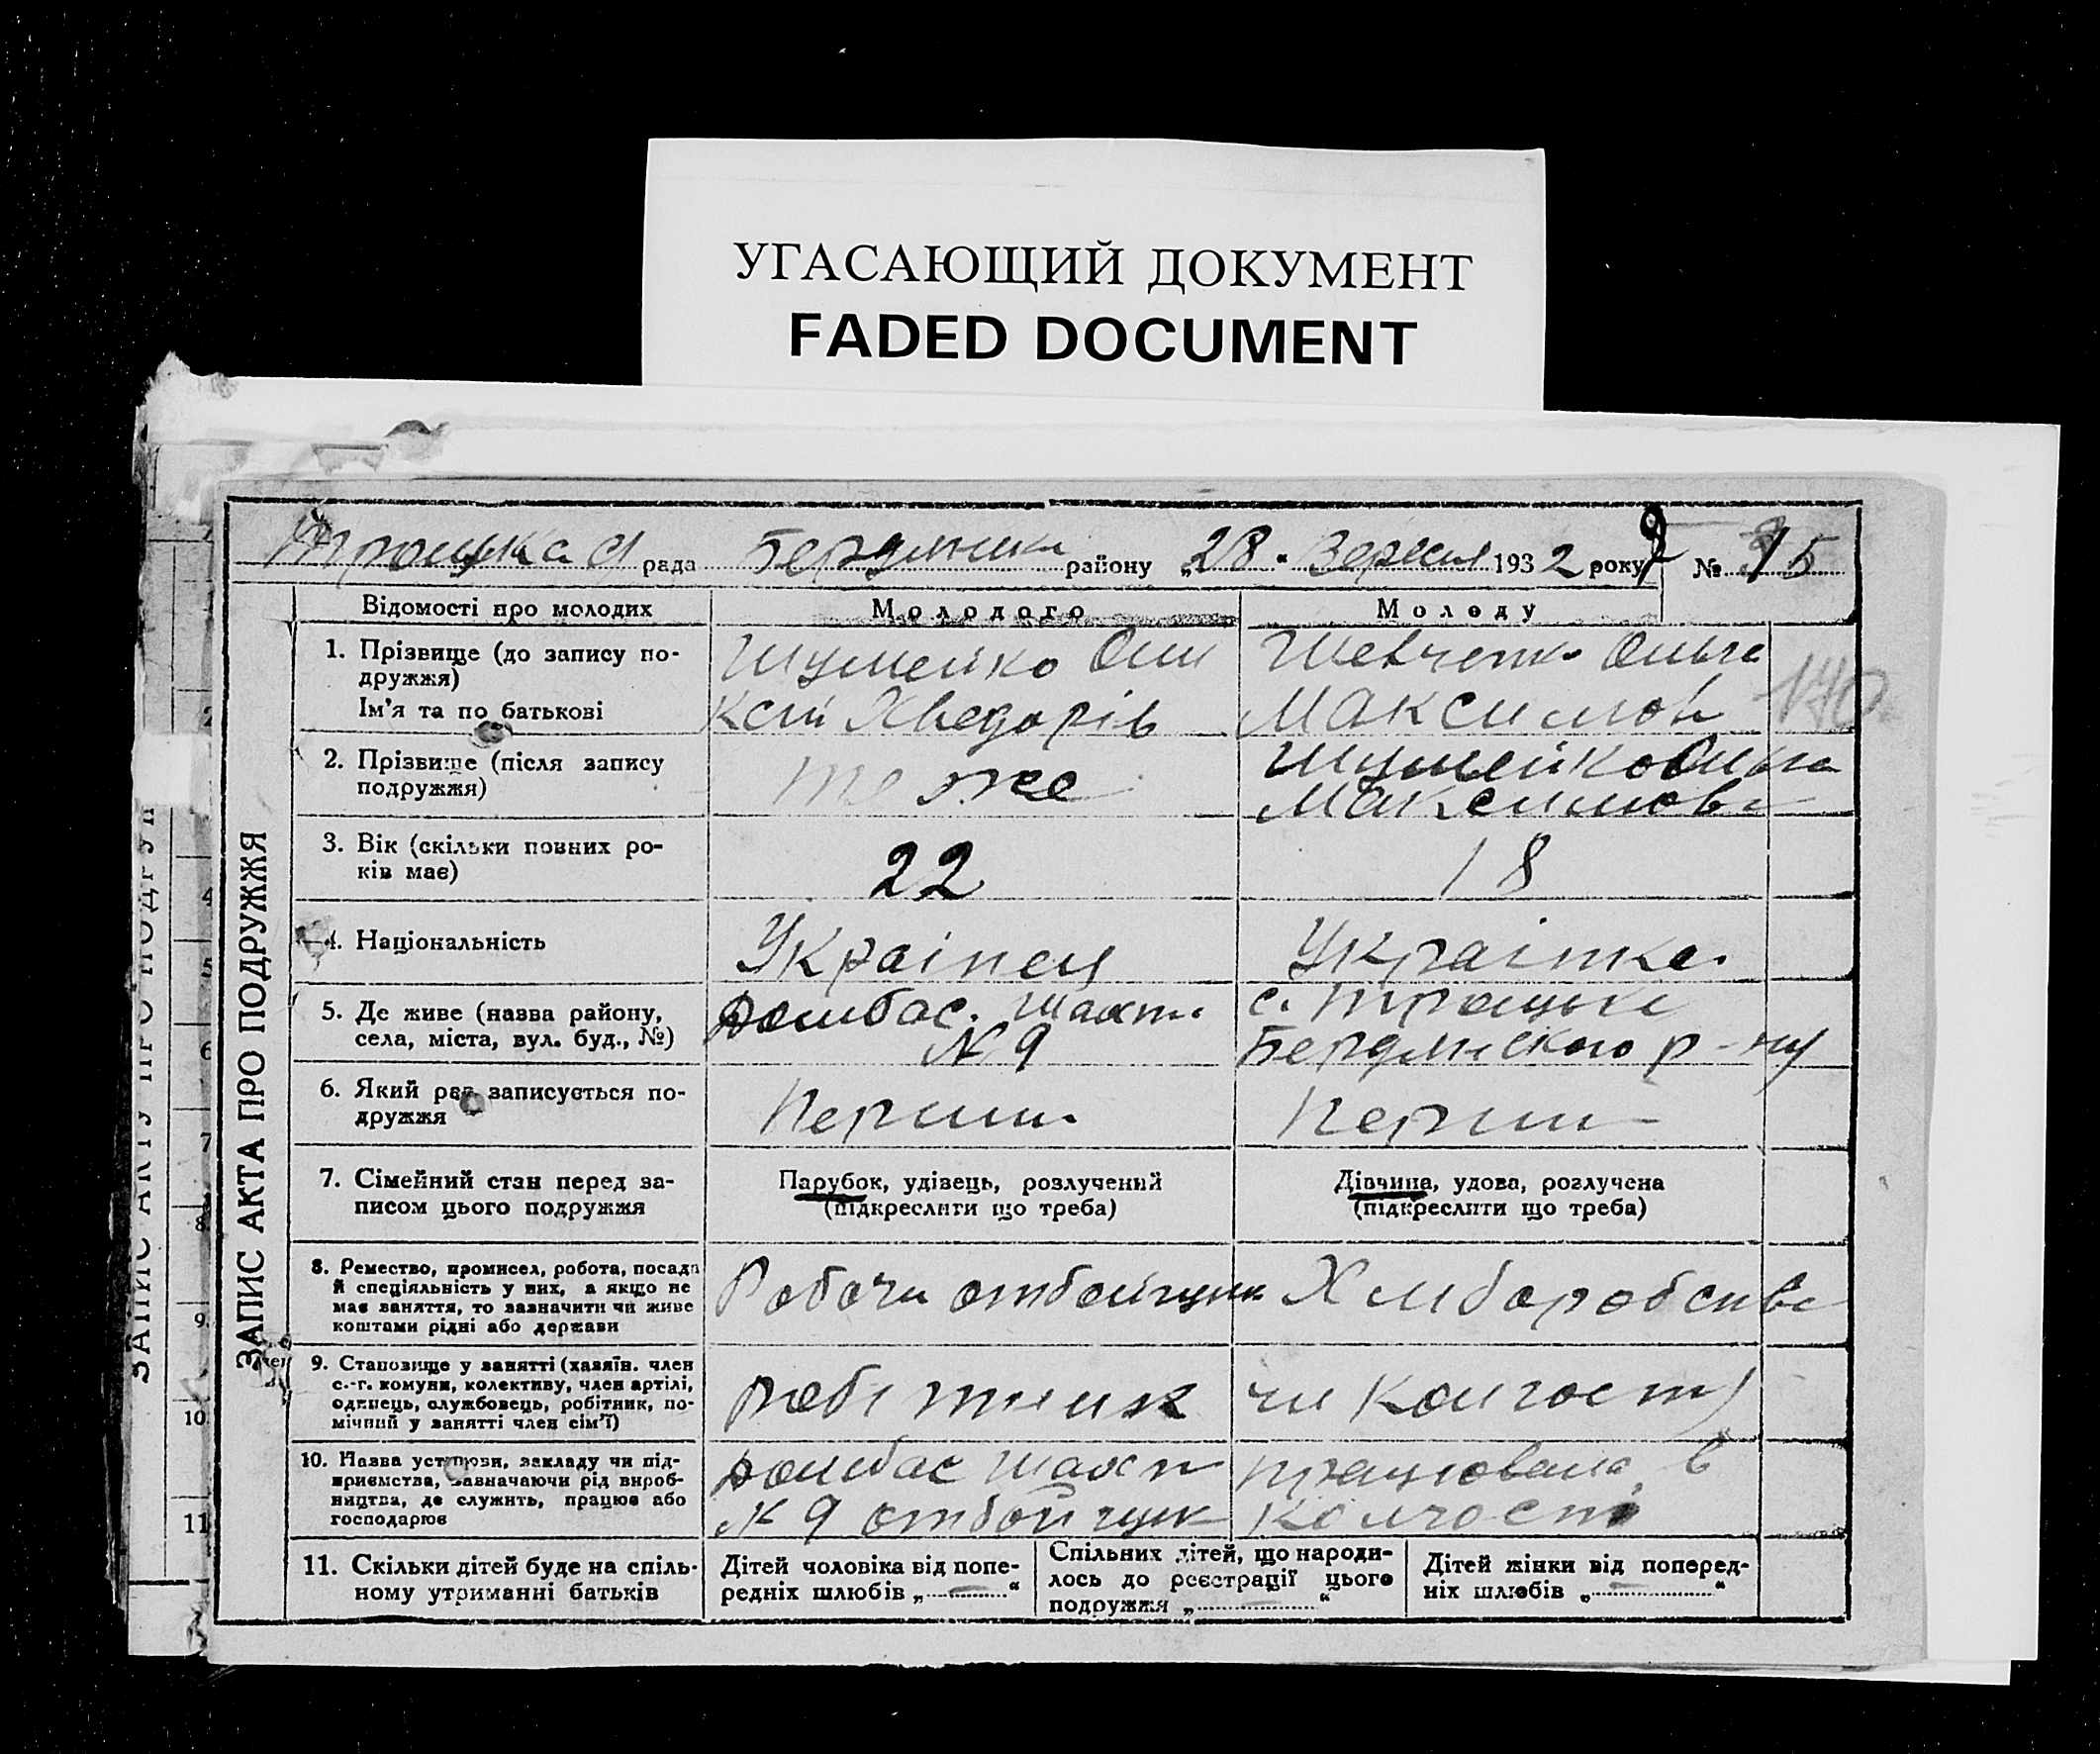 УГАСАЮЩИЙ ДОКУМЕНТ
FADED DOCUMENT
ЗАПИС АКТА ПРО ПОДРУЖЖЯ
рада району „28“ 1932 року № 15
Відомості про молодих Молодого Молоду
1. Прізвище (до запису по-
дружжя)
Ім'я та по батькові
Шумейко Оли
ксій Хведорів
Шевченко Ольга
Максимов
170
2. Прізвище (після запису
подружжя)
то оже
Шумейко Ольга
Максимова
3. Вік (скільки повних ро-
ків має)
22
18
4. Національність
Українец
Українка.
5. Де живе (назва району,
села, міста, вул. буд., №)
Домбас. Шахт.
№ 9
с. Троцьке
р-ну
6. Який раз записується по-
дружжя
Перший
Перший
7. Сімейний стан перед за-
писом цього подружжя
Парубок, удівець, розлучений
(підкреслити що треба)
Дівчина, удова, розлучена
(підкреслити що треба)
8. Ремество, промисел, робота, посада
й спеціяльність у них, а якщо не
має заняття, то зазначити чи живе
коштами рідні або держави
Робочи отбойщик
Хлиборобство
9. Становище у занятті (хазяїн. член
с.-г. комуни, колективу, член артілі,
одинець, службовець, робітник, по-
мічний у занятті член сім'ї)
робітник
чл колгоспу
10. Назва установи, закладу чи під-
приємства, зазначаючи рід вироб-
ництва, де служить, працює або
господарює
Домбас Шахт
№ 9 отбойщик
працювала в
колгоспі
11. Скільки дітей буде на спіль-
ному утриманні батьків
Дітей чоловіка від попе-
редніх шлюбів „ — “
Спільних дітей, що народи-
лось до реєстрації цього
подружжя „ — “
Дітей жінки від поперед-
ніх шлюбів „ — “